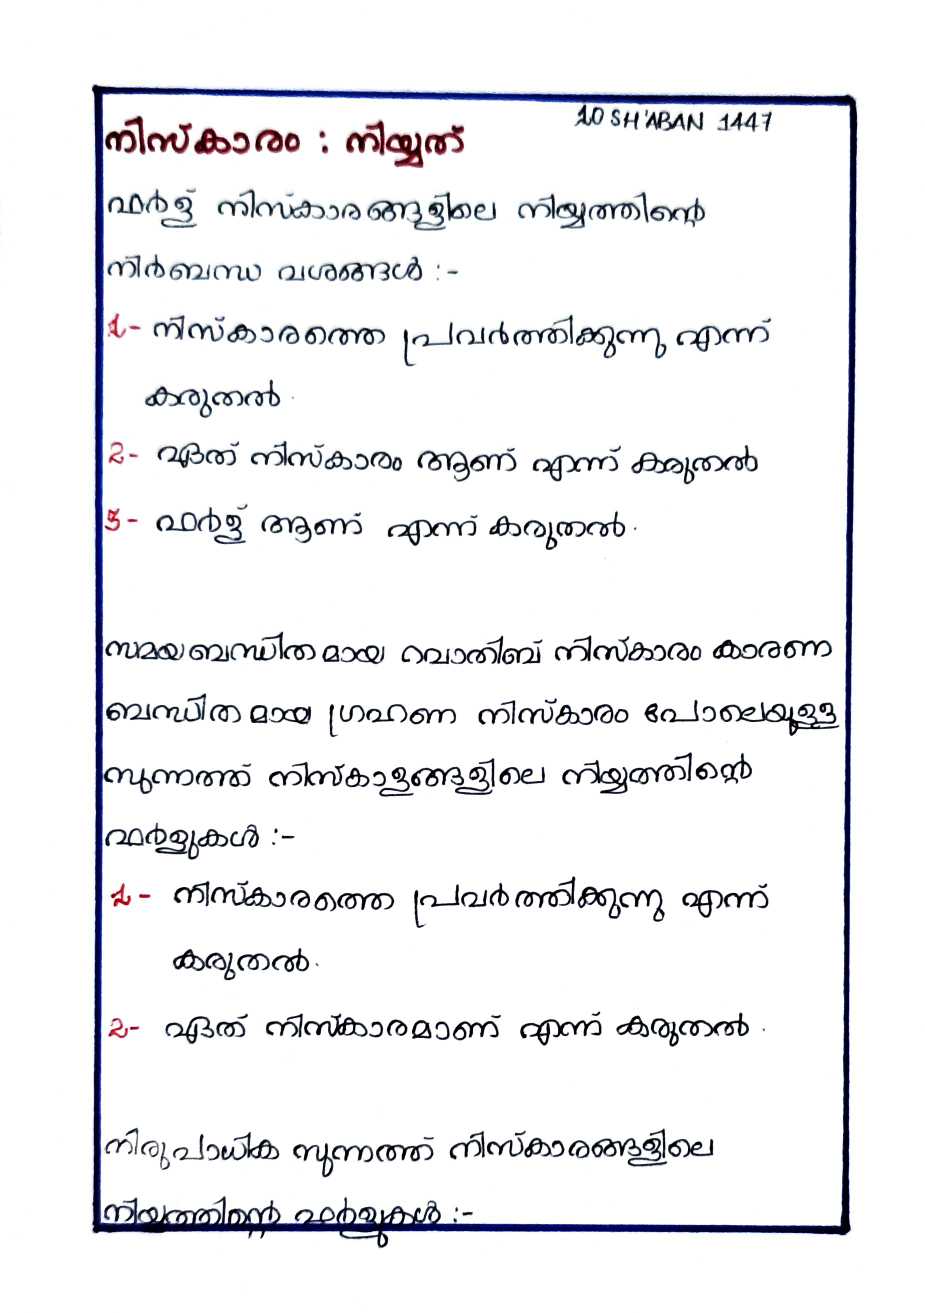 10 SH'ABAN 1447
നിസ്കാരം : നിയ്യത്
ഫർള് നിസ്കാരങ്ങളിലെ നിയ്യത്തിന്റെ
നിർബന്ധ വശങ്ങൾ :-
1- നിസ്കാരത്തെ പ്രവർത്തിക്കുന്നു എന്ന്
കരുതൽ.
2- ഏത് നിസ്കാരം ആണ് എന്ന് കരുതൽ
3- ഫർള് ആണ് എന്ന് കരുതൽ.
സമയബന്ധിതമായ റവാതിബ് നിസ്കാരം കാരണ
ബന്ധിതമായ ഗ്രഹണ നിസ്കാരം പോലെയുള്ള
സുന്നത്ത് നിസ്കാളങ്ങളിലെ നിയ്യത്തിന്റെ
ഫർളുകൾ :-
1- നിസ്കാരത്തെ പ്രവർത്തിക്കുന്നു എന്ന്
കരുതൽ.
2- ഏത് നിസ്കാരമാണ് എന്ന് കരുതൽ.
നിരുപാധിക സുന്നത്ത് നിസ്കാരങ്ങളിലെ
നിയ്യത്തിന്റെ ഫർളുകൾ :-